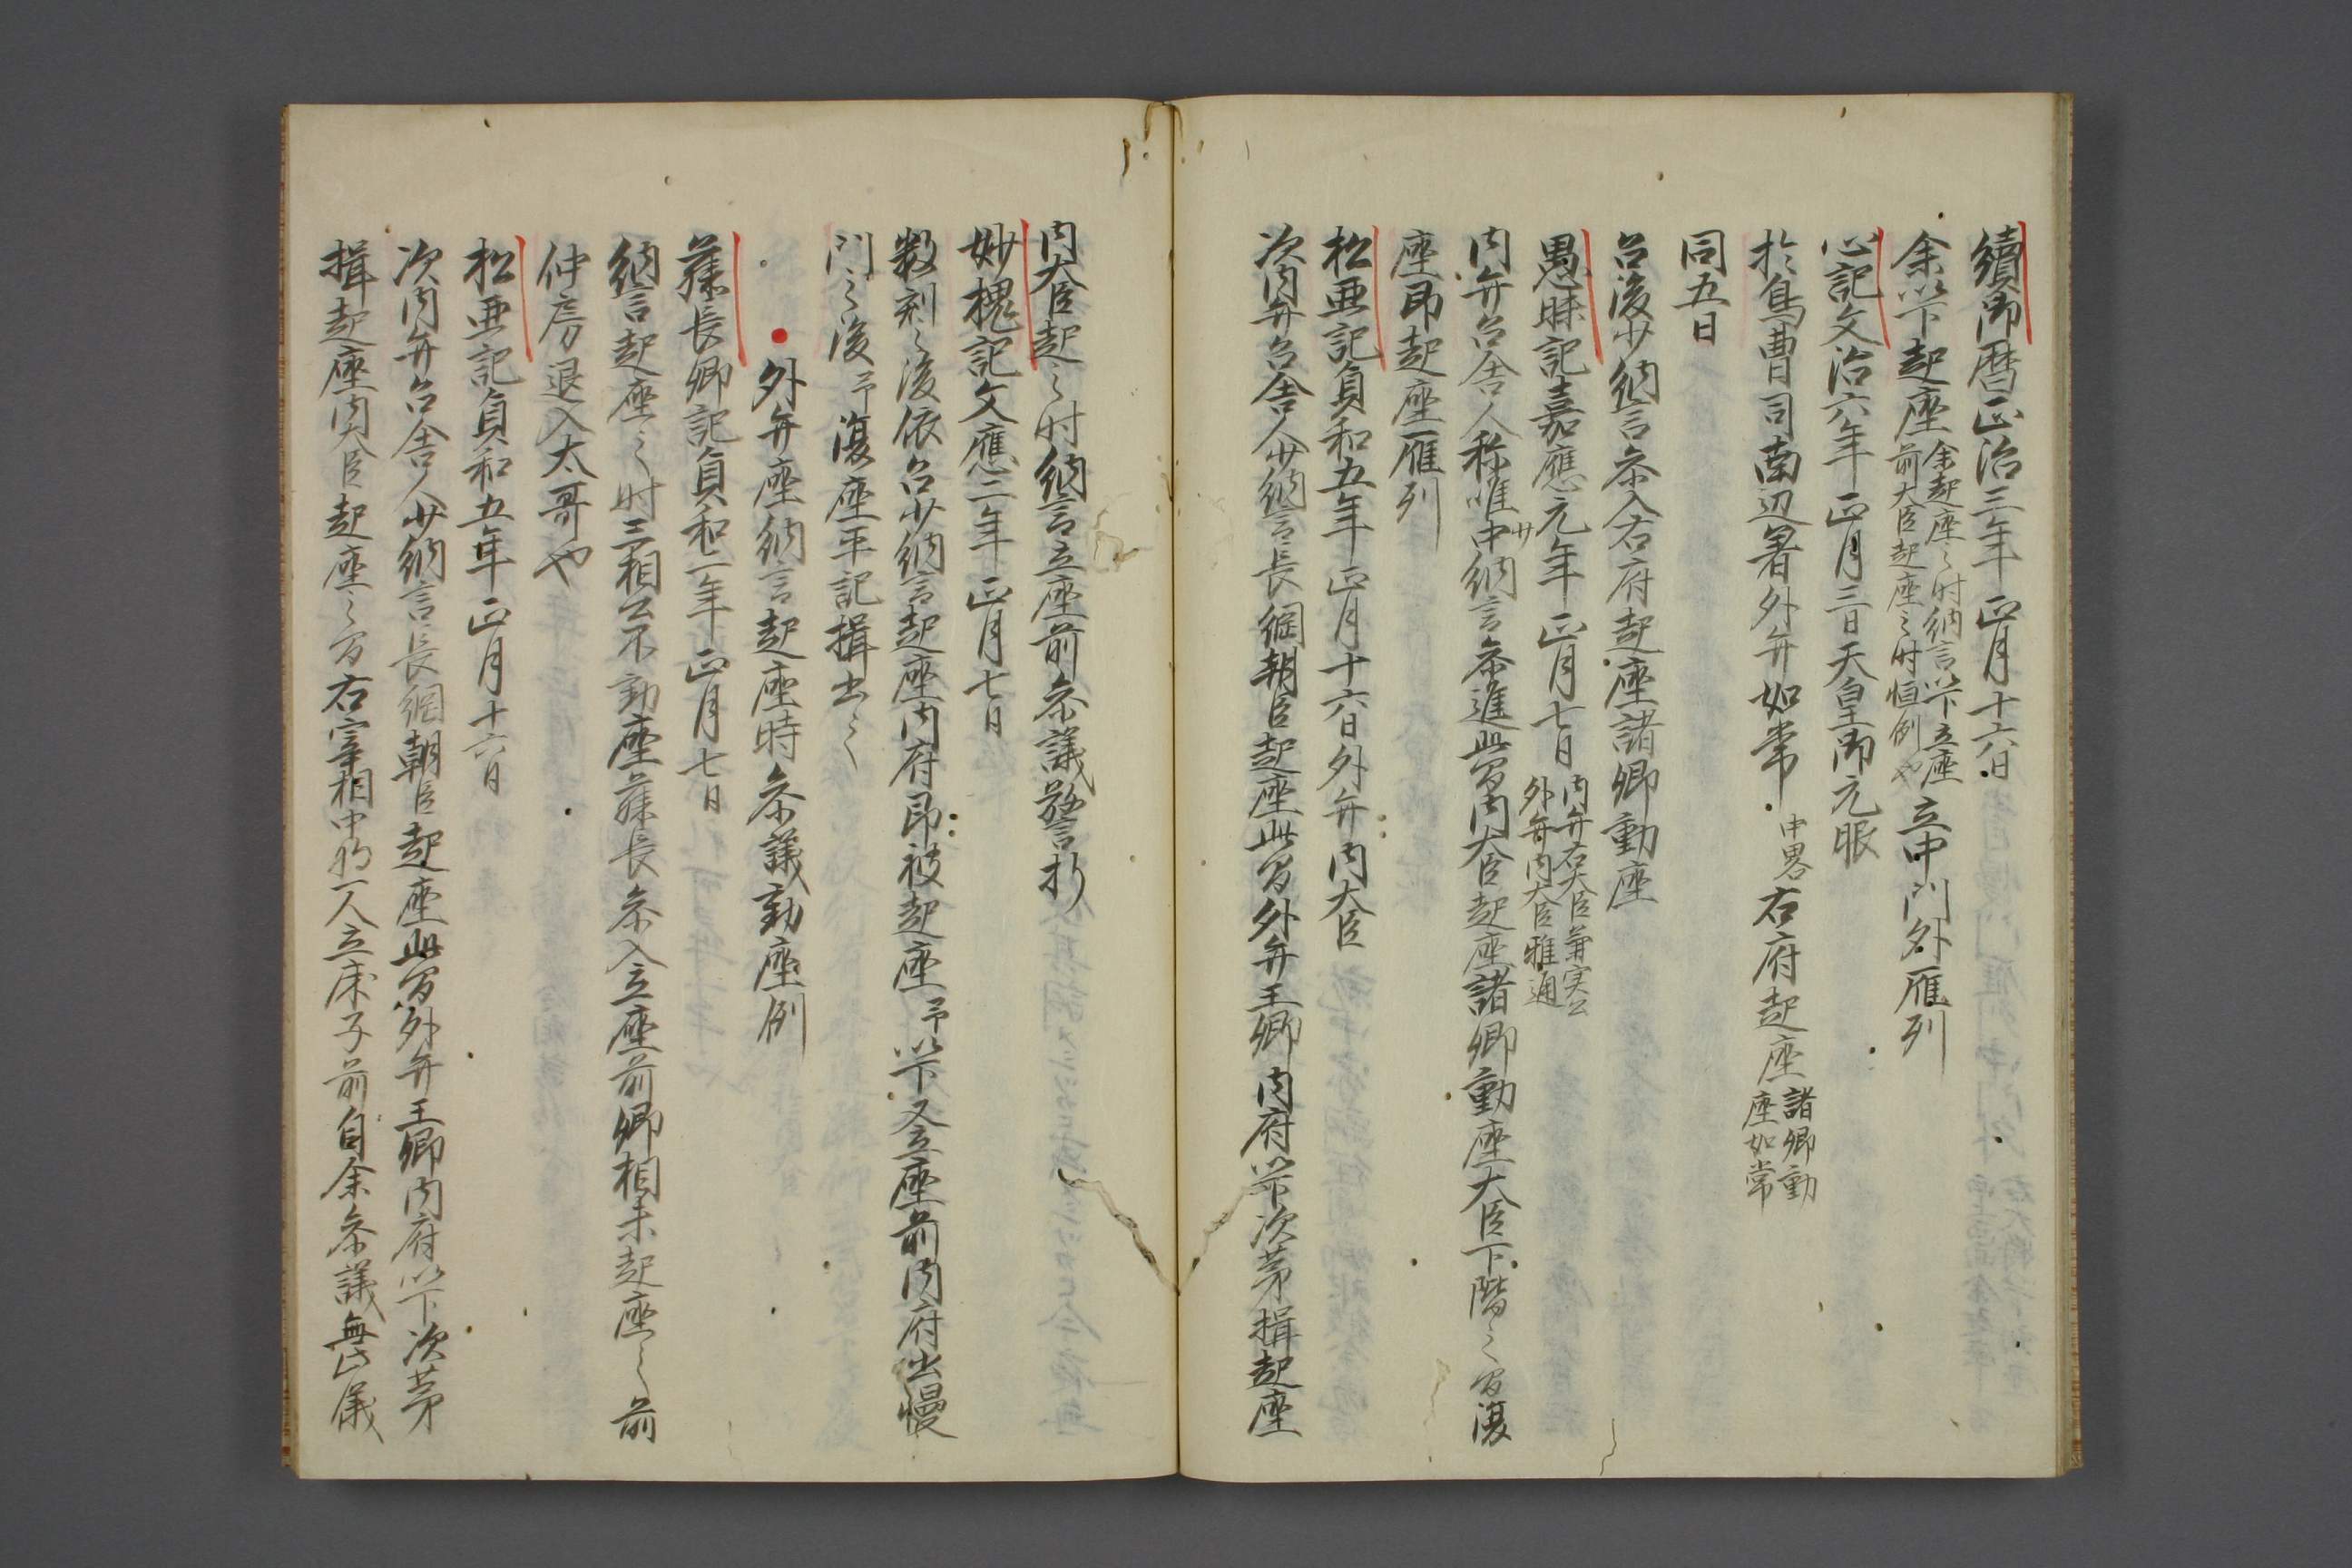 續御暦正治三年正月十六日
余以下起座余起座之時納言以下立座
前大臣起座之時恒例也立中門外雁列
心記文治六年正月三日天皇御元服
於鳥曹司南辺著外弁如常中畧右府起座諸卿動
座如常
同五日
召後少納言参入右府起座諸卿動座
愚昧記嘉應元年正月七日内弁右大臣兼実公
外弁内大臣雅通
内弁召舎人称唯少中納言参進此間内大臣起座諸卿動座大臣下階之間復
座即起座雁列
松亜記貞和五年正月十六日外弁内大臣
次内弁召舎人少納言長綱朝臣起座此間外弁王卿内府以下次第揖起座
内大臣起之時納言立座前参議磬折
妙槐記文應二年正月七日
数刻之後依召少納言起座内府即被起座予以下又立座前内府出幔
門之後予復座平記揖出之
外弁座納言起座時参議動座例
藤長卿記貞和二年正月七日
納言起座之時三相公不動座藤長参入立座前卿相未起座之前
仲房退入太哥也
松亜記貞和五年正月十六日
次内弁召舎人少納言長綱朝臣起座此間外弁王卿内府以下次第
揖起座内大臣起座之間右宰相中将一人立床子前自余参議無此儀